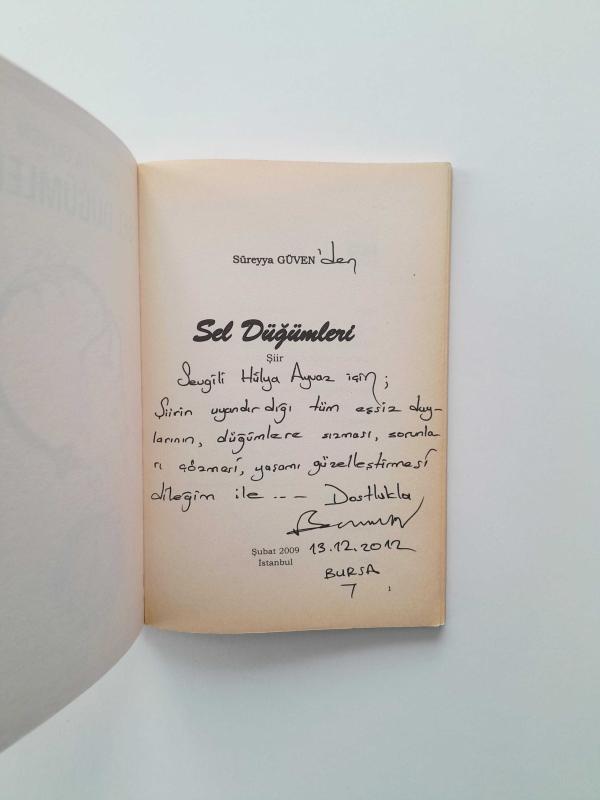 DÜĞÜMLE
Süreyya GÜVEN 'den
Sel Düğümleri
Şiir
Sevgili Hülya Ayvaz için;
Şiirin uyandırdığı tüm eşsiz duy-
larının, düğümlere sızması, sorunla-
rı çözmesi, yaşamı güzelleştirmesi
dileğim ile... — Dostlukla
Şubat 2009 13.12.2012
İstanbul
BURSA
1